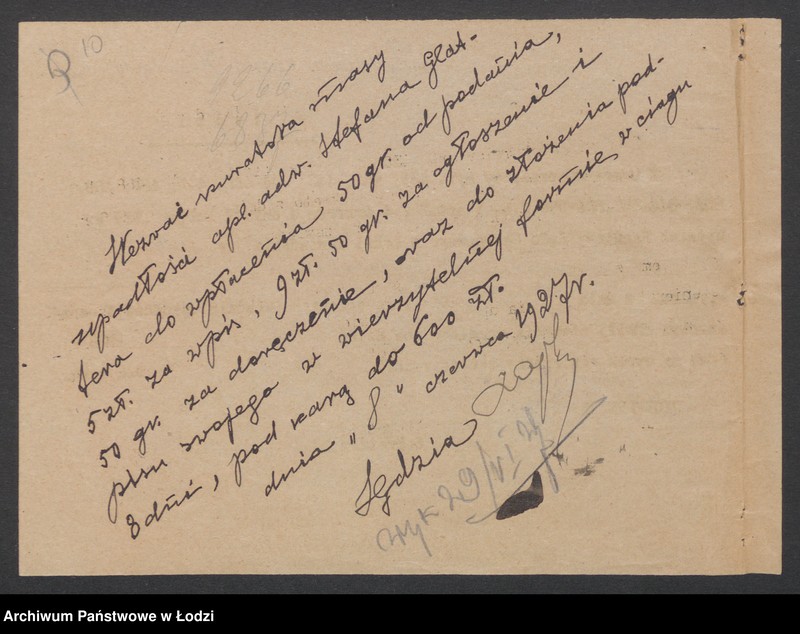 10
Wezwać kuratora masy
upadłości apl. adw. Stefana Glat-
tera do wpłacenia 50 gr. od podania,
5 zł. za wpis, 9 zł. 50 gr. za ogłoszenie i
50 gr. za doręczenie, oraz do złożenia pod-
pisu swojego w wierzytelnej formie, w ciągu
8 dni, pod karą do 600 zł.
dnia „8" czerwca 1927 r.
Sędzia
wyk 29/VI 27
Archiwum Państwowe w Łodzi